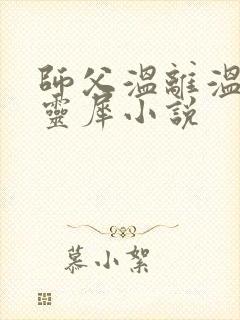 師父溫離溫
靈犀小說
慕小絮